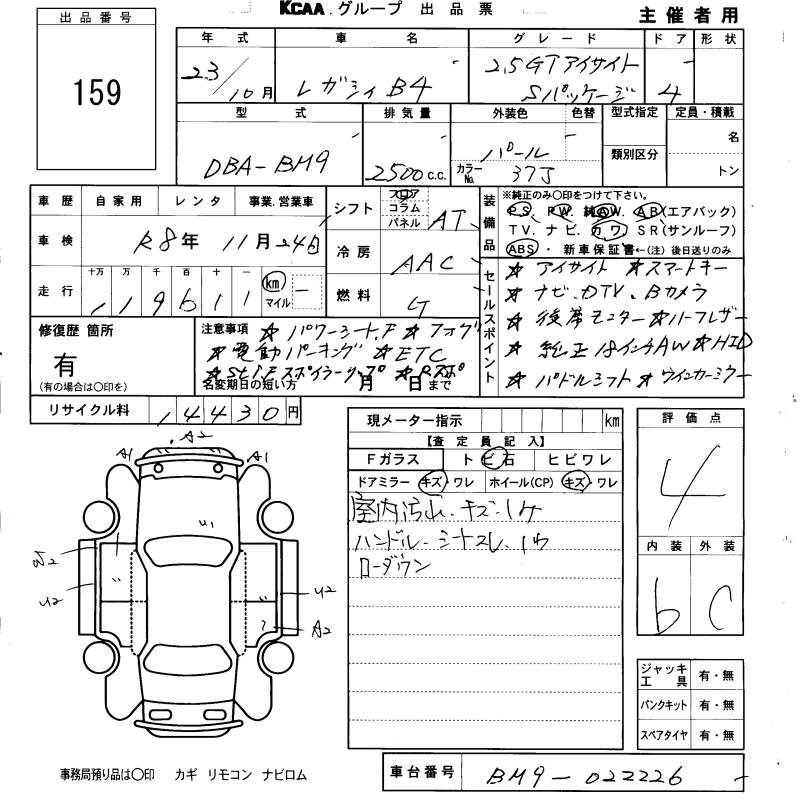 KCAA.グループ 出品票
主催者用
出品番号
159
年式 車名 グレード ドア 形状
23/10月 レガシィ B4 2.5GTアイサイト Sパッケージ 4
型式 排気量 外装色 色替 型式指定 定員・積載
DBA-BM9 2500c.c. パール 名
カラーNo. 37J 類別区分 トン
車歴 自家用 レンタ 事業.営業車
車検 R8年 11月24日
走行 十万 万 千 百 十 一
119611 km マイル
シフト フロア コラム パネル AT
冷房 AAC
燃料 G
装備品
※純正のみ〇印をつけて下さい。
PS. PW. 純AW. AB(エアバック)
TV. ナビ. カワ. SR(サンルーフ)
ABS・新車保証書←(注)後日送りのみ
セールスポイント
★ アイサイト ★スマートキー
★ ナビ.DTV.Bカメラ
★ 後席モニター★ハーフレザー
★ 純正18インチAW★HID
★ パドルシフト ★ウインカーミラー
修復歴 箇所
有
(有の場合は〇印を)
注意事項 ★パワーシート.F ★フォグ
★電動パーキング ★ETC
★STIFスポイラーリップ ★Rスポ
名変期日の短い方 月 日まで
リサイクル料 14430円
現メーター指示 km
【査定員記入】
Fガラス トビ石 ヒビワレ
ドアミラー キズ・ワレ ホイール(CP) キズ・ワレ
室内汚れ.キズ.コケ
ハンドル.シートスレ.
ローダウン
評価点
4
内装 外装
b C
ジャッキ工具 有・無
パンクキット 有・無
スペアタイヤ 有・無
A2
A1 A1
U1
W2
U2 U2
A2
事務局預り品は〇印 カギ リモコン ナビロム
車台番号 BM9-022226